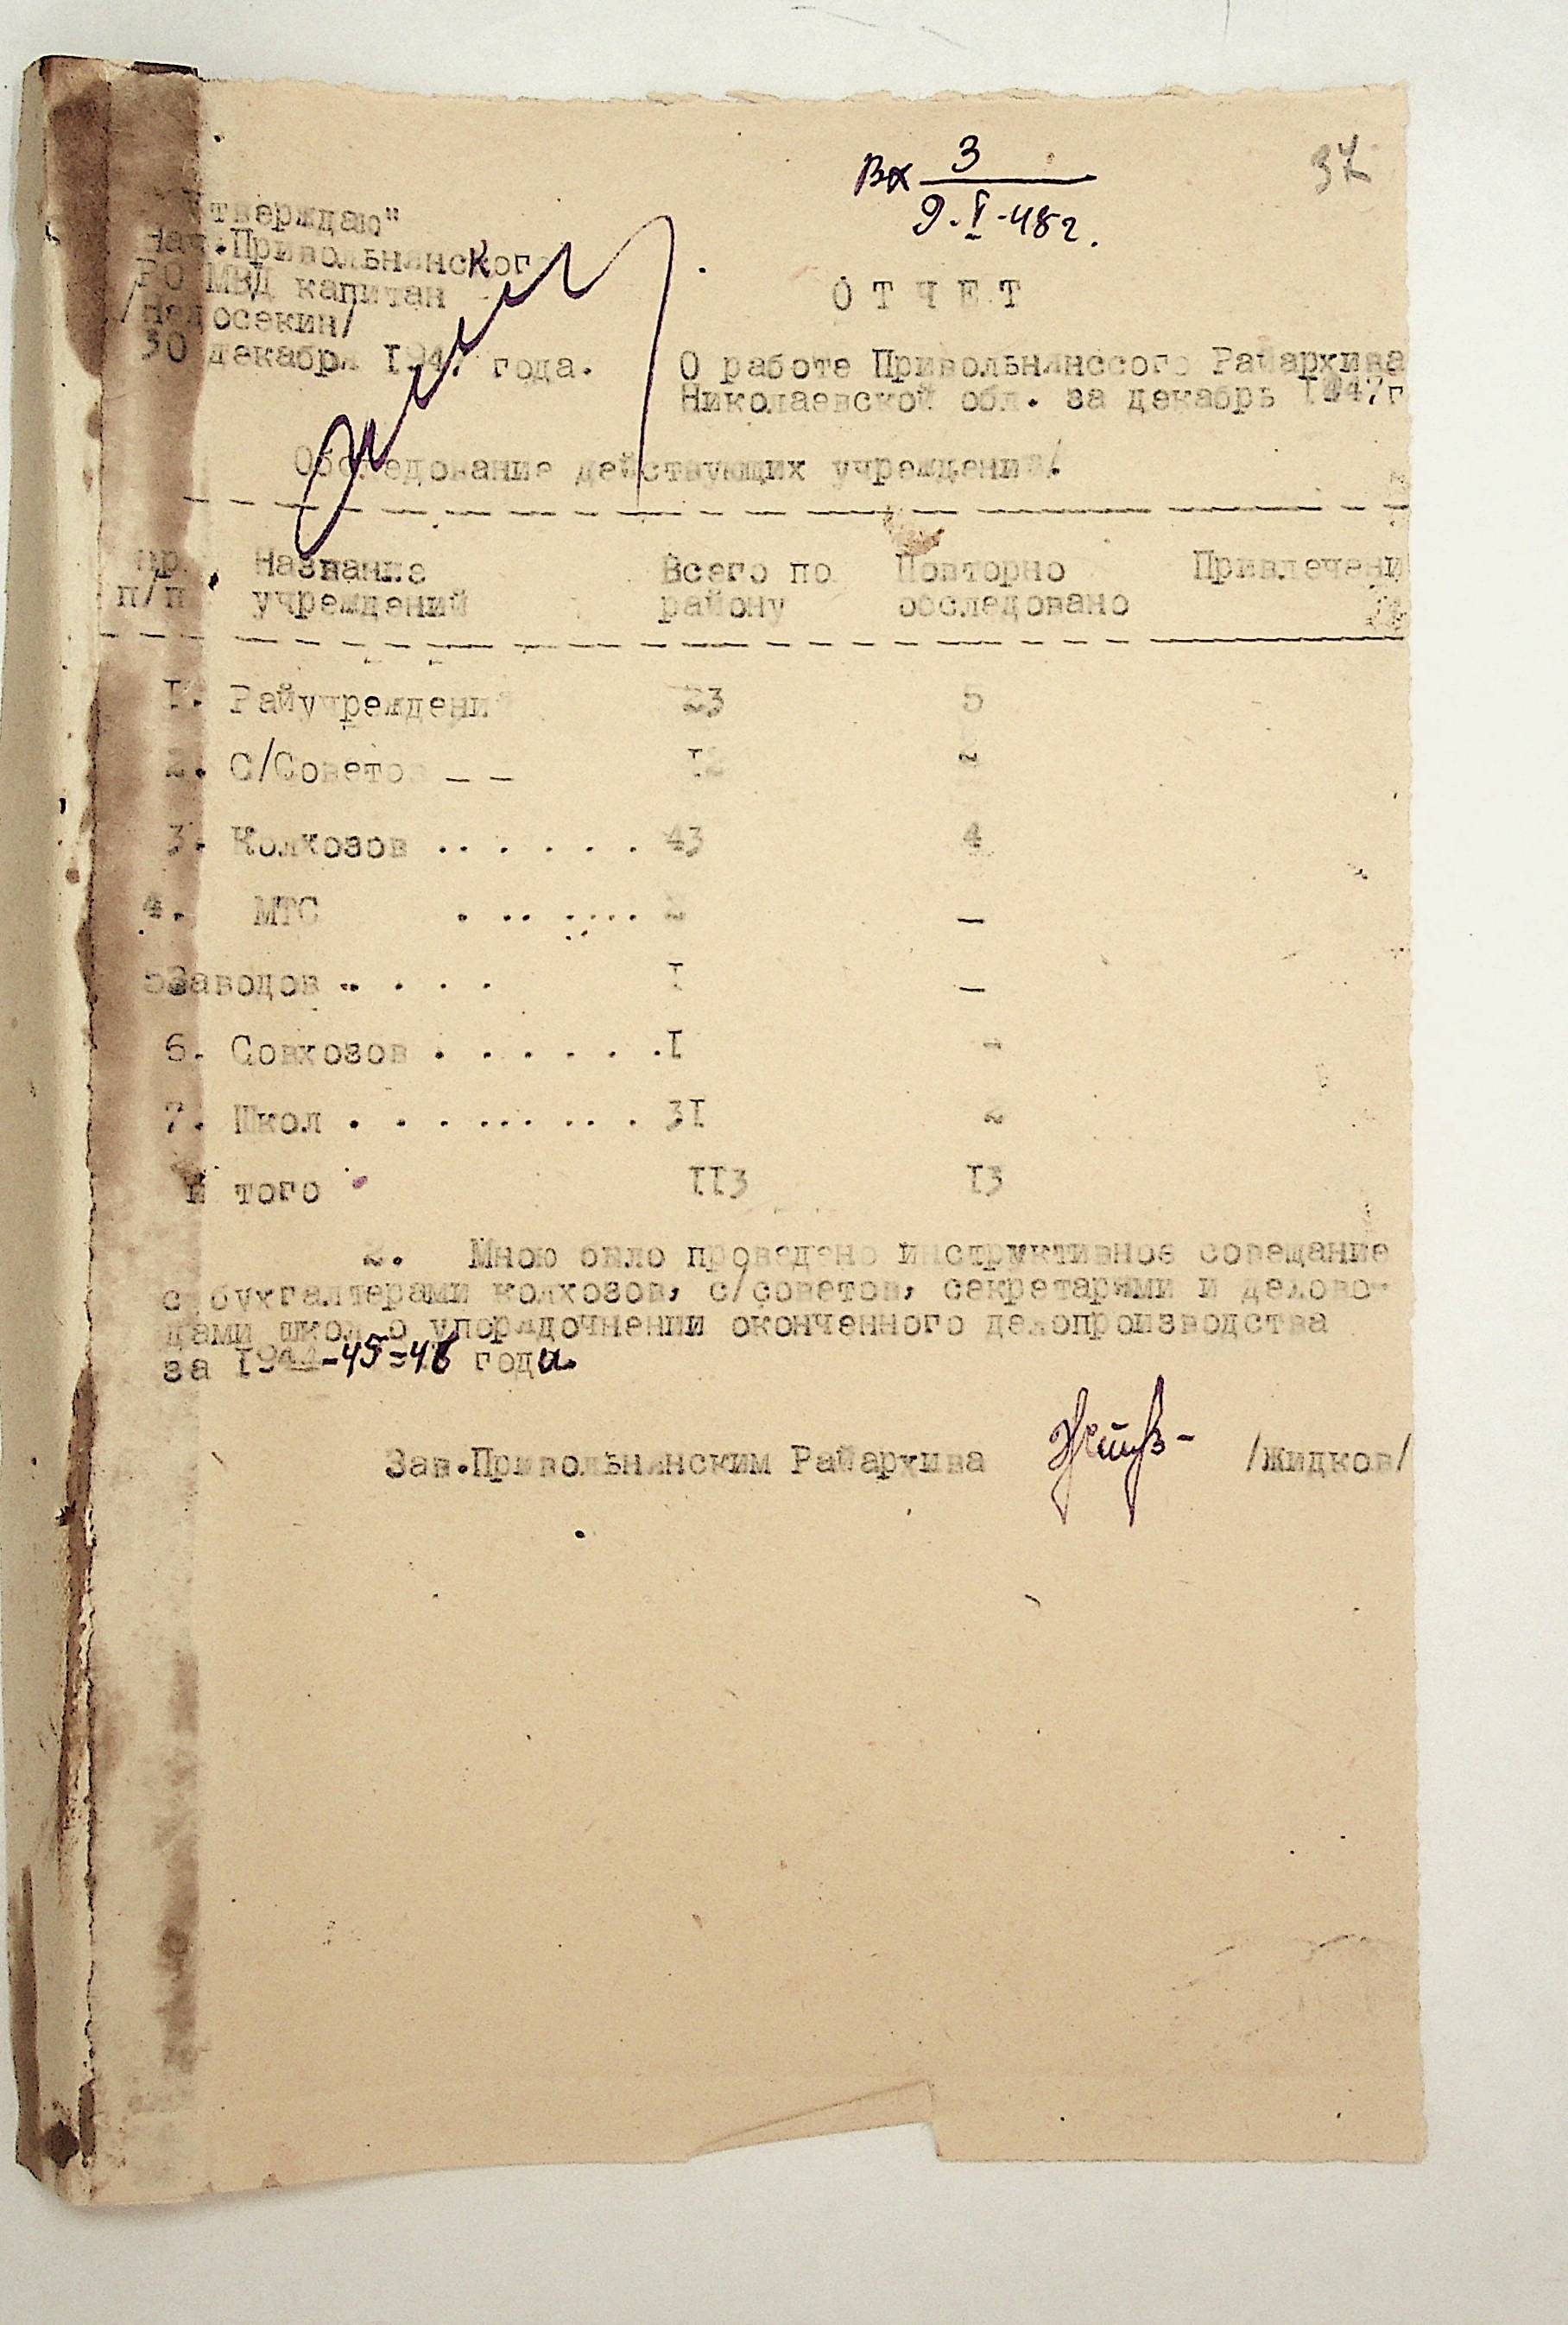 Вх 3
9.I-48г.
37
"Утверждаю"
Нач.Привольнянского
РО МВД капитан
/Недосекин/
30 декабря 1947 года.
О Т Ч Е Т
О работе Привольнянссого Райархива
Николаевской обл. за декабрь I947г
Обследование действующих учреждений.
пр. Название Всего по Повторно Привлечени
п/п учреждений району обследовано
I. Райучреждений 23 5
2. С/Советов _ _ I2 2
3. Колхозов .. . . . . . 43 4
4. МТС . .. .... 2 _
5Заводов .. . . . I _
6. Совхозов . . . . . . I -
7. Школ . . . . ... .. . 3I 2
И того II3 I3
2. Мною было проведено инструктивное совещание
с бухгалтерами колхозов, с/советов, секретарями и делово-
дами школ о упорядочнении оконченного делопроизводства
за I944-45=46 года.
Зав.Привольнянским Райархива /Жидков/